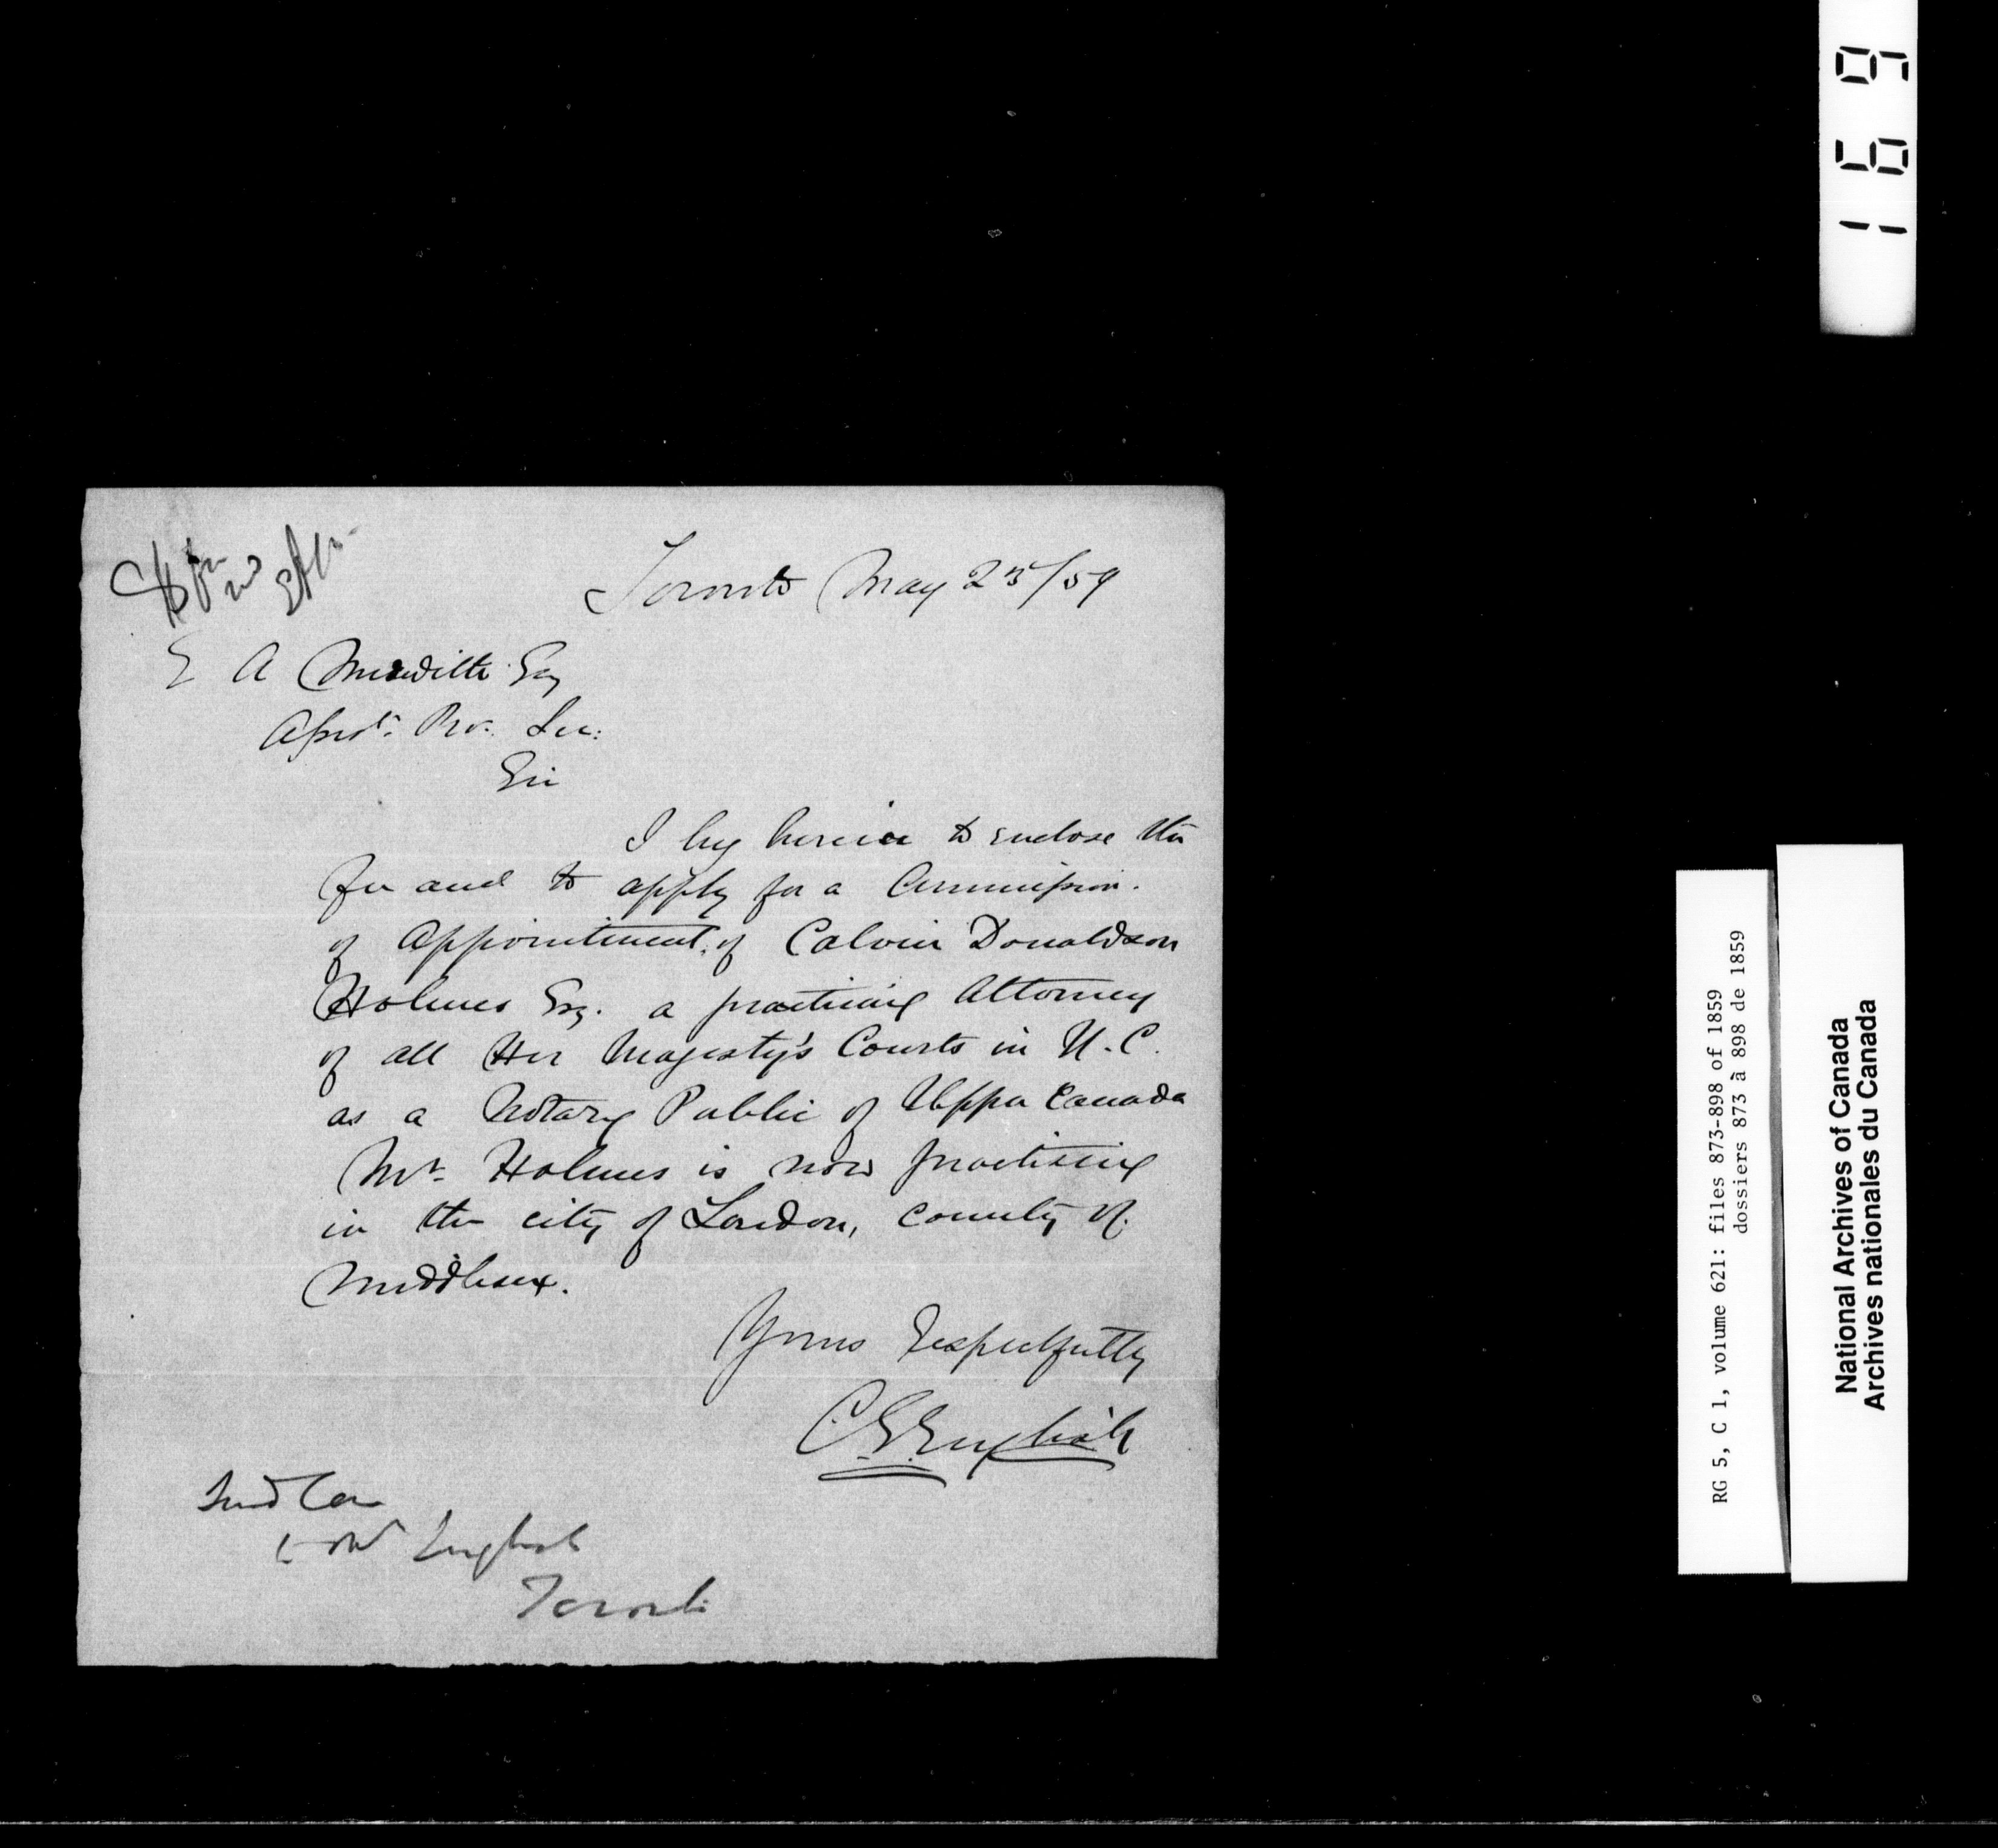 Toronto May 23/59
E A Meredith Esq
Assist. Pro. Sec:
Sir
I beg herein to enclose the
fee and to apply for a Commission.
of Appointment of Calvin Donaldson
Holmes Esq. a practicing Attorney
of all Her Magesty's Courts in U.C.
as a Notary Public of Upper Canada
Mr. Holmes is now practising
in the city of London, County of
Middlesex.
Yours respectfully
C. E. English
Send Com
to Mr English
Toronto
169
RG 5, C 1, volume 621: files 873-898 of 1859
dossiers 873 à 898 de 1859
National Archives of Canada
Archives nationales du Canada